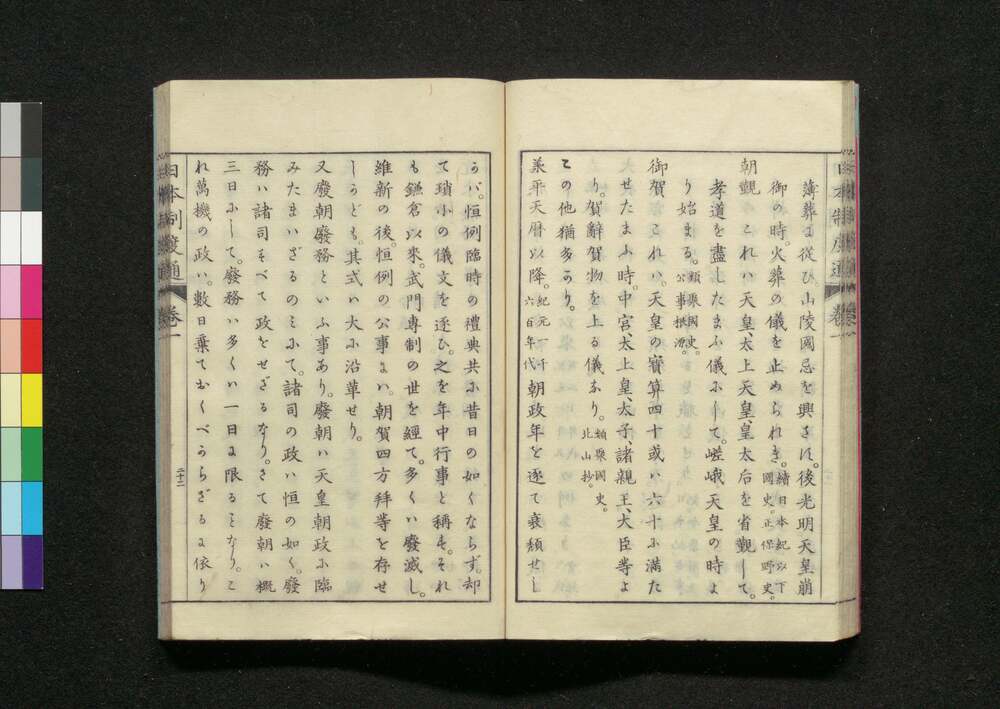 薄葬に從ひ。山陵國忌を興さに。後光明天皇崩
御の時。火葬の儀を止められき。續日本紀以下國史。正保野史。
朝覲 これハ天皇、太上天皇、皇太后を省覲して。
孝道を盡したまふ儀にして。嵯峨天皇の時よ
り始まる。類聚國史。公事根源。
御賀 これハ。天皇の寶算四十或ハ六十に滿た
せたまふ時。中宮、太上皇、太子、諸親王、大臣等よ
り。賀辭賀物を上る儀なり。類聚國史。北山抄。
この他猶多かり。
承平天曆以降。紀元一千六百年代朝政年を逐て衰頽せし
かバ。恒例臨時の禮典共に昔日の如くならず。却
て瑣小の儀文を逐ひ。之を年中行事と稱す。それ
も鎌倉以來。武門專制の世を經て。多くハ廢滅し。
維新の後。恒例の公事にハ。朝賀四方拜等を存せ
しかども。其式ハ大に沿革せり。
又廢朝廢務といふ事あり。廢朝ハ天皇朝政に臨
みたまハざるのミにて。諸司の政ハ恒の如く。廢
務ハ諸司すべて政をせざるなり。さて廢朝ハ概
三日にして。廢務ハ多くハ一日に限ることなり。こ
れ萬機の政ハ。數日棄ておくべからざるに依り
日本制度通
卷一
二十二
日本制度通
卷一